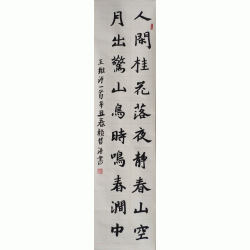 人閑桂花落夜靜春山空
月出驚山鳥時鳴春澗中
王維詩一首辛丑春賴